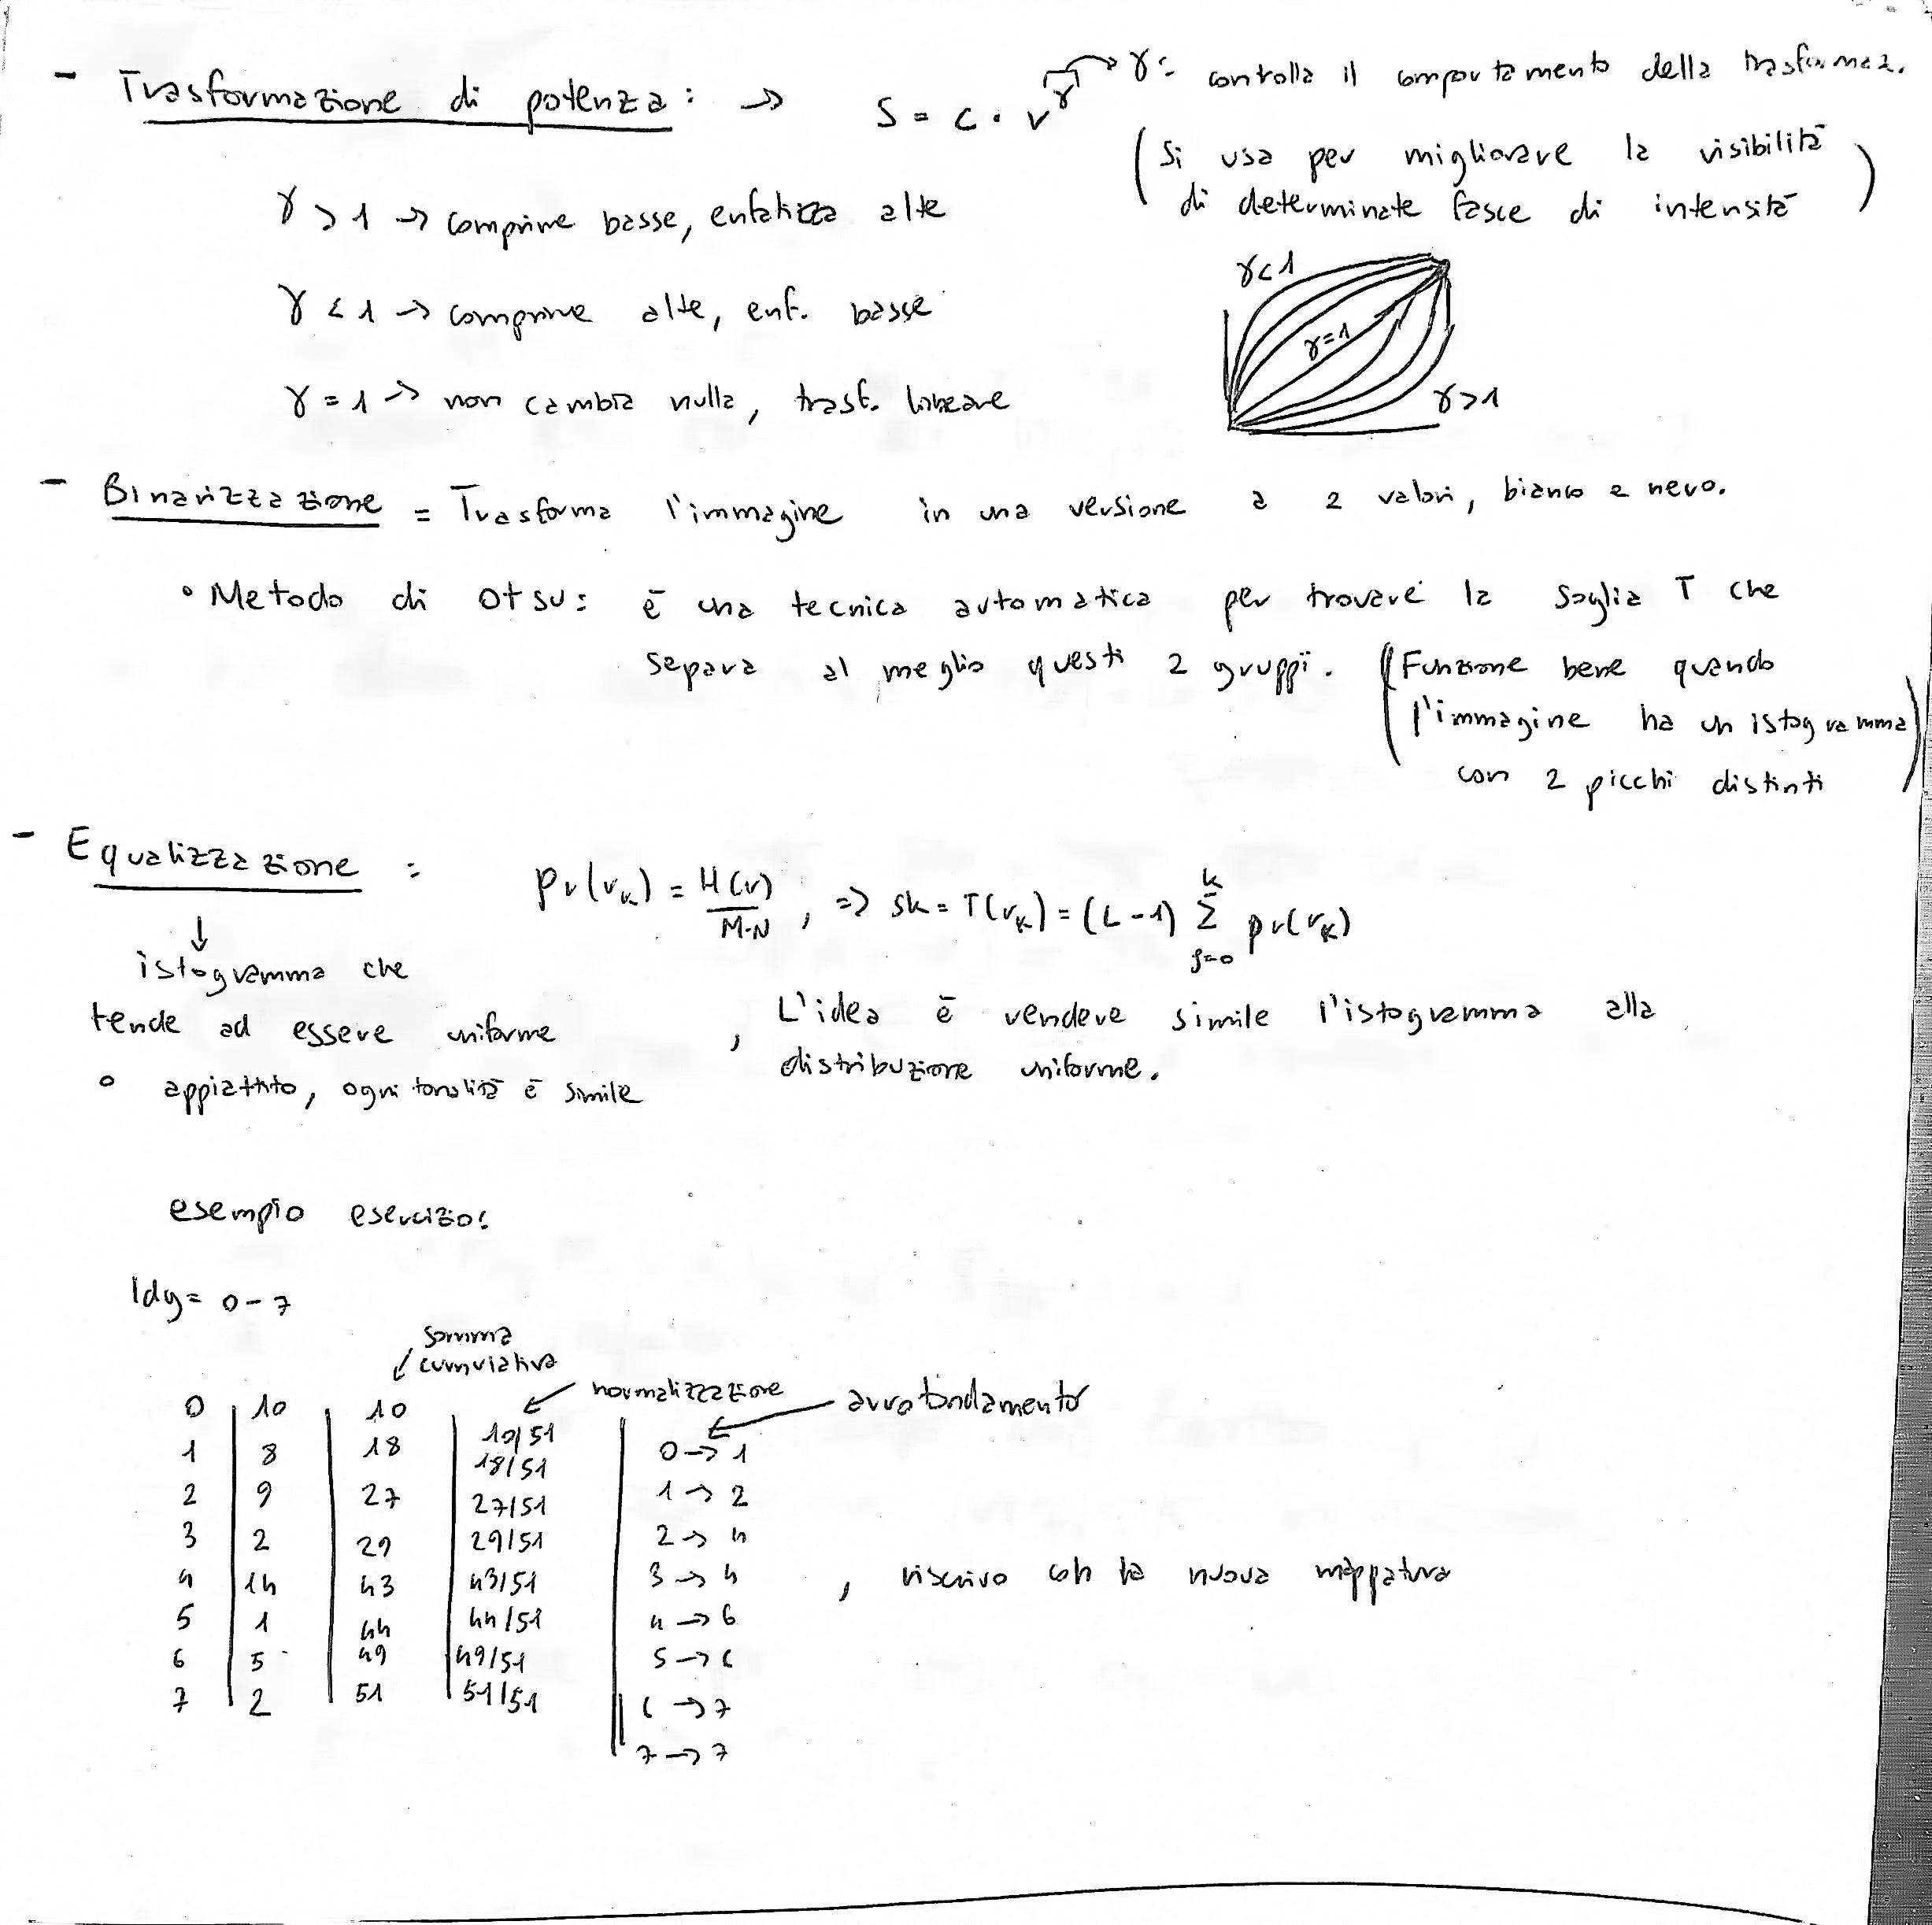 - Trasformazione di potenza: → s = c · r^γ → γ = controlla il comportamento della trasformaz.
(Si usa per migliorare la visibilità
di determinate fasce di intensità)
γ > 1 → comprime basse, enfatizza alte
γ < 1 → comprime alte, enf. basse
γ = 1 → non cambia nulla, trasf. lineare
γ<1
γ=1
γ>1
- Binarizzazione = Trasforma l'immagine in una versione a 2 valori, bianco e nero.
• Metodo di Otsu: è una tecnica automatica per trovare la soglia T che
separa al meglio questi 2 gruppi. (Funzione bene quando
l'immagine ha un istogramma
con 2 picchi distinti)
- Equalizzazione : pr(rk) = H(r)/M·N , => sk = T(rk) = (L-1) Σ j=0 k pr(rk)
↓
istogramma che
tende ad essere uniforme
• appiattito, ogni tonalità è simile
, L'idea è rendere simile l'istogramma alla
distribuzione uniforme.
esempio esercizio:
ldg = 0 - 7
somma
cumulativa
normalizzazione
arrotondamento
0 | 10 | 10 | 10/51 | 0 → 1
1 | 8 | 18 | 18/51 | 1 → 2
2 | 9 | 27 | 27/51 | 2 → 4
3 | 2 | 29 | 29/51 | 3 → 4
4 | 14 | 43 | 43/51 | 4 → 6
5 | 1 | 44 | 44/51 | 5 → 6
6 | 5 | 49 | 49/51 | 6 → 7
7 | 2 | 51 | 51/51 | 7 → 7
, riscrivo con la nuova mappatura